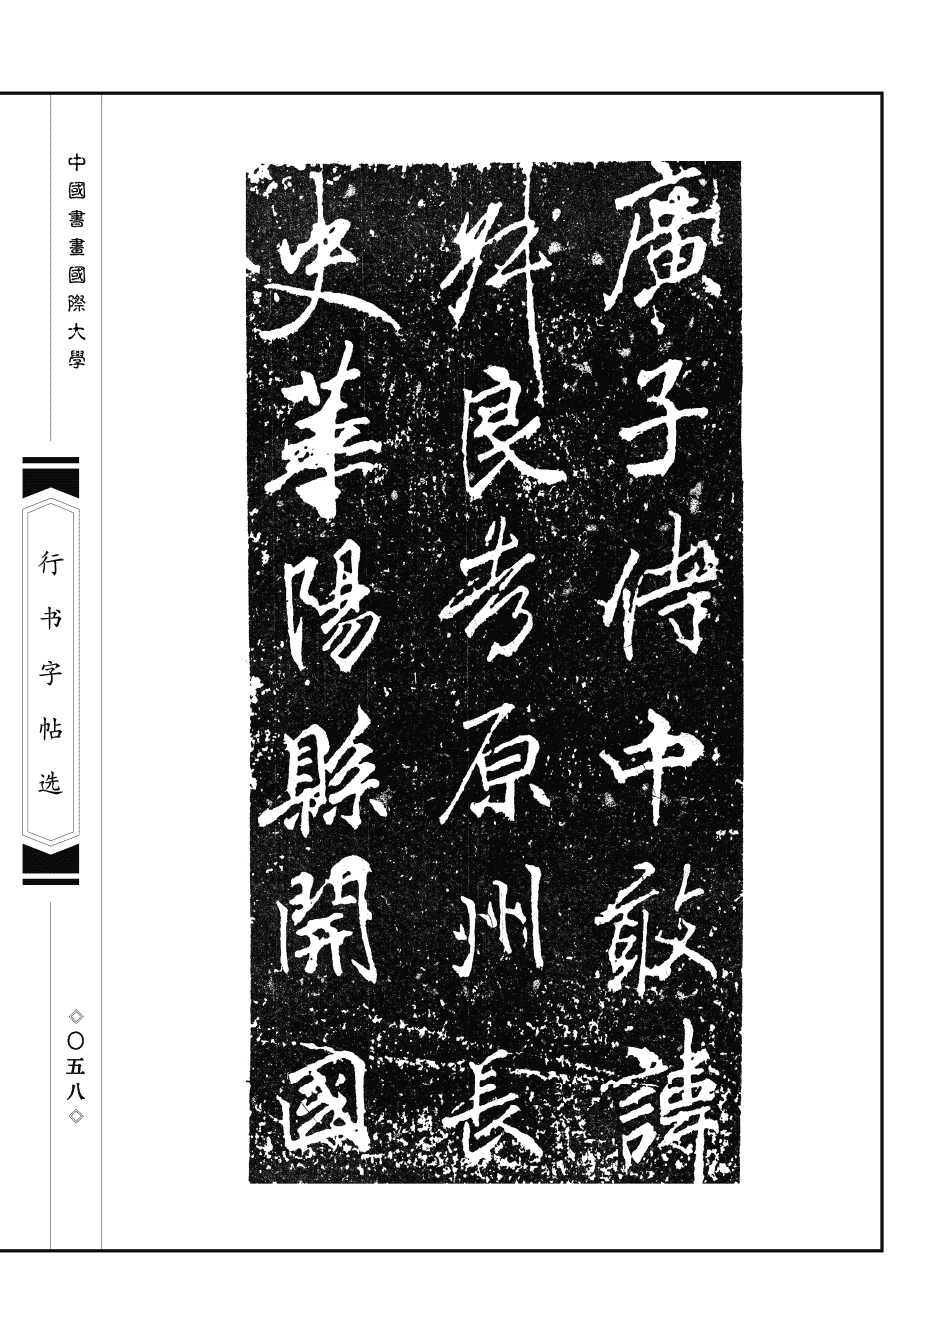 廣子侍中敢諱
叔良考原州長
史華陽縣開國
中國書畫國際大學
行书字帖选
〇五八